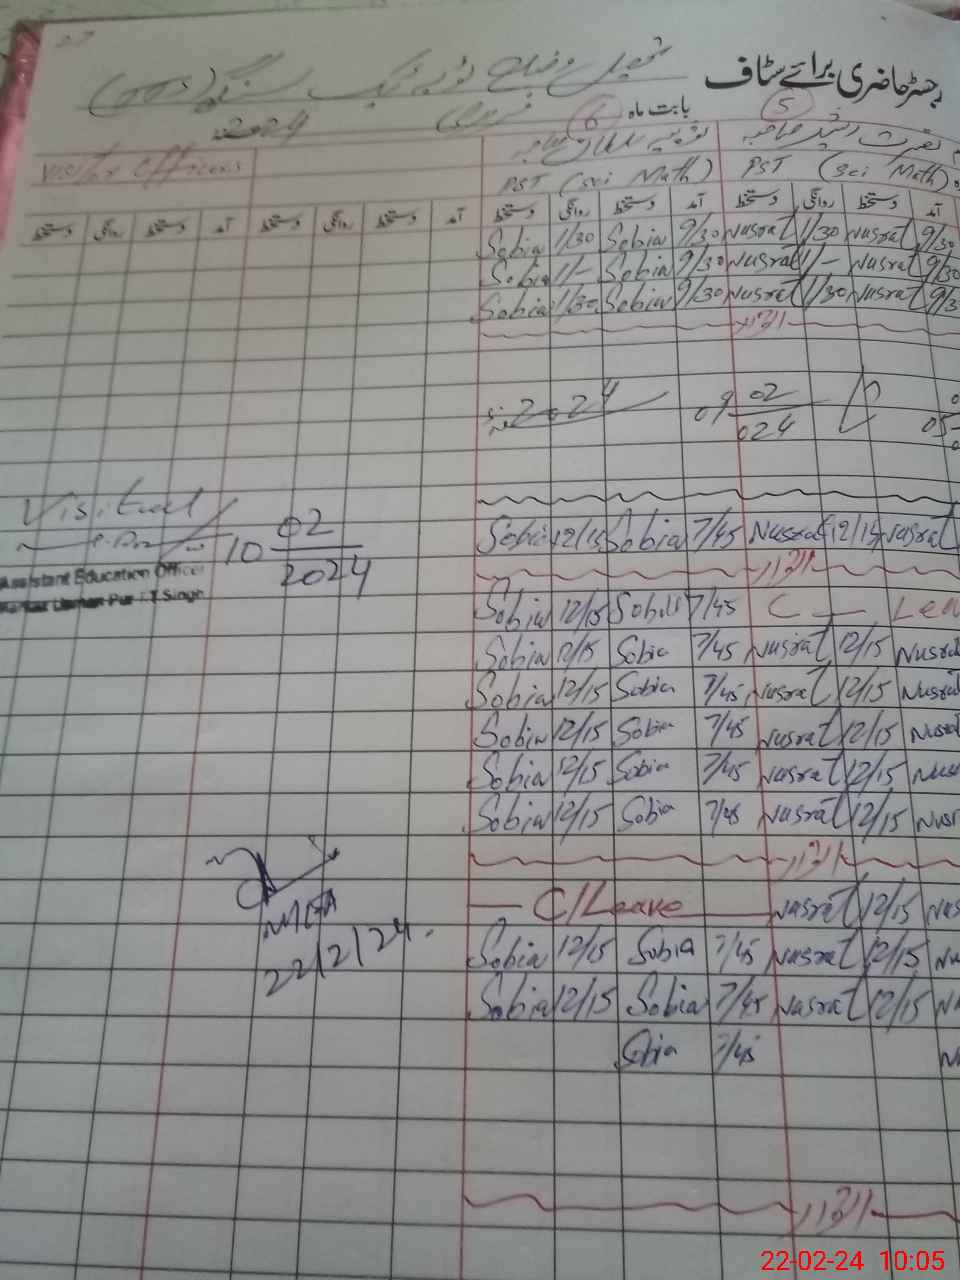 رجسٹر حاضری برائے سٹاف
بابت ماہ
2024
5 6
Visitor Officers
PST (Sci Math) PST (Sci Math)
آمد دستخط روانگی دستخط آمد دستخط روانگی دستخط آمد دستخط روانگی دستخط آمد دستخط روانگی دستخط
Sobia 1/30 Sobia 9/30 Nusrat 1/30 Nusrat 9/30
Sobia 1/- Sobia 9/30 Nusrat 1/- Nusrat 9/30
Sobia 1/30 Sobia 9/30 Nusrat 1/30 Nusrat 9/3
اتوار
2024 09 02
024
05
Visited
10 02
2024
Assistant Education Officer
Sobia 12/15 Sobia 7/45 Nusrat 12/15 Nusrat
اتوار
Sobia 12/15 Sobia 7/45 C — Lea
Sobia 12/15 Sobia 7/45 Nusrat 12/15 Nusrat
Sobia 12/15 Sobia 7/45 Nusrat 12/15 Nusrat
Sobia 12/15 Sobia 7/45 Nusrat 12/15 Nusrat
Sobia 12/15 Sobia 7/45 Nusrat 12/15 Nus
Sobia 12/15 Sobia 7/45 Nusrat 12/15 Nusr
اتوار
— C/Leave — Nusrat 12/15 Nus
MEA
22/2/24.
Sobia 12/15 Sobia 7/45 Nusrat 12/15 Nu
Sobia 12/15 Sobia 7/45 Nusrat 12/15 N
Sobia 7/45 N
اتوار
22-02-24 10:05